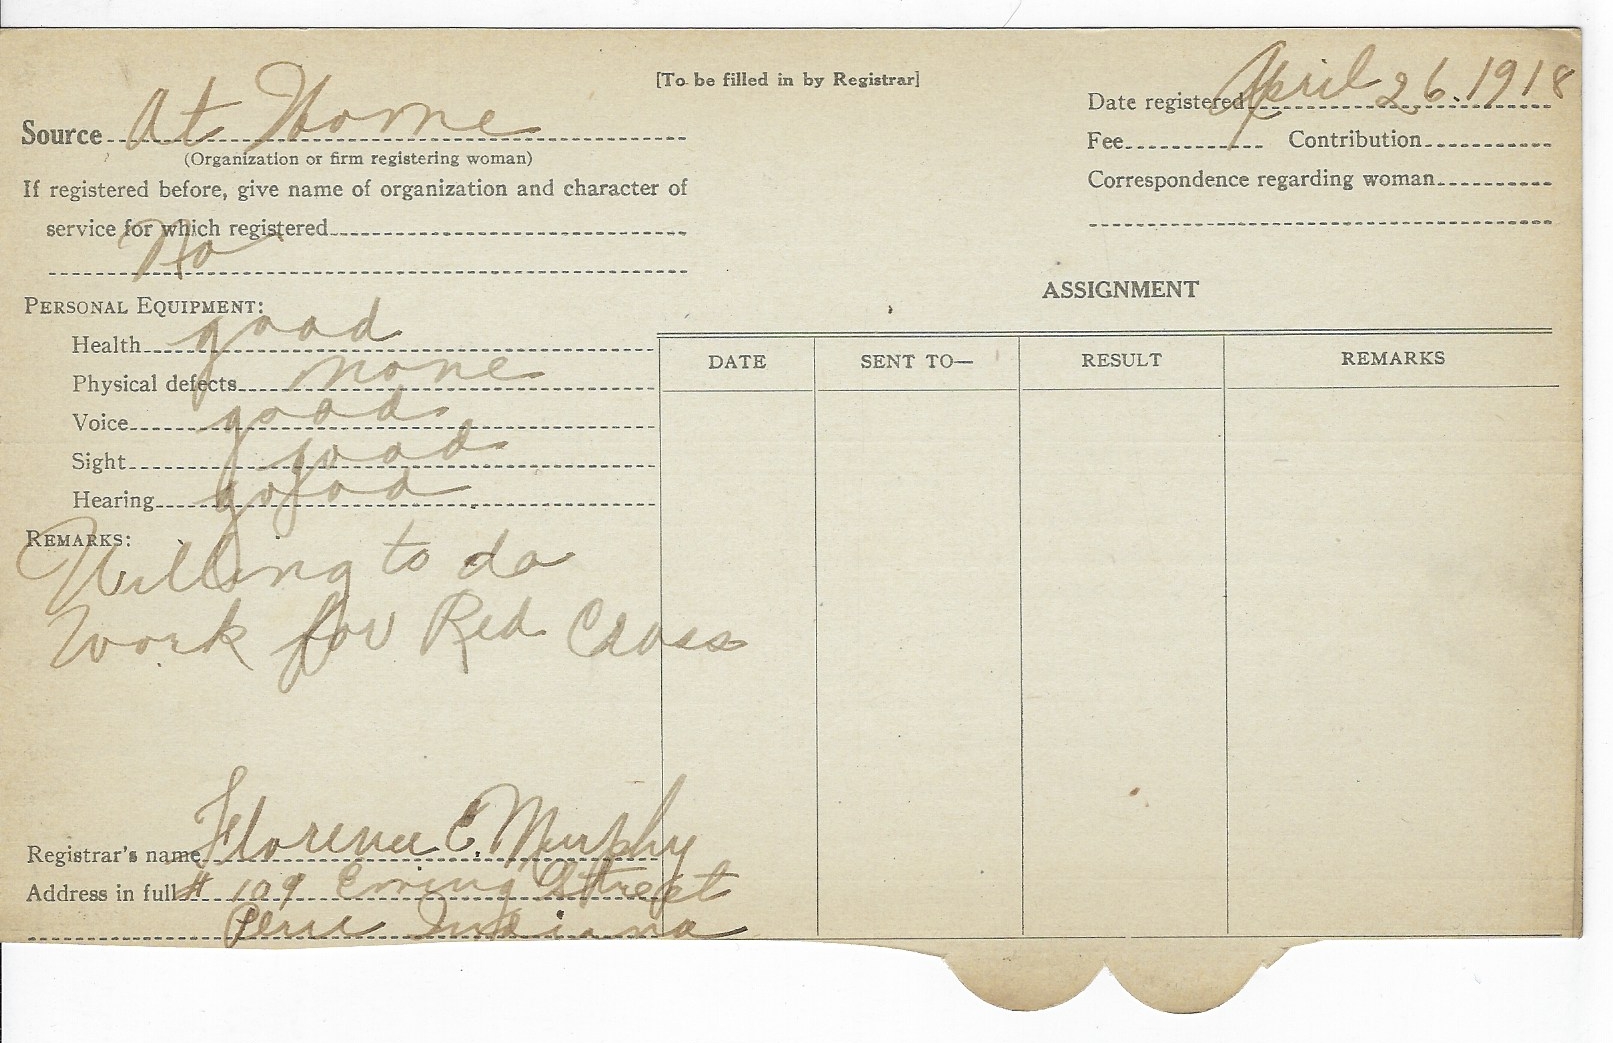 [To be filled in by Registrar]
Date registered April 26. 1918
Source At Home
(Organization or firm registering woman)
Fee Contribution
If registered before, give name of organization and character of
Correspondence regarding woman
service for which registered
No
ASSIGNMENT
PERSONAL EQUIPMENT:
Health good
DATE SENT TO— RESULT REMARKS
Physical defects none
Voice good
Sight good
Hearing good
REMARKS:
Willing to do
work for Red Cross
Registrar's name Florence E. Murphy
Address in full # 109 Ewing Street
Peru Indiana